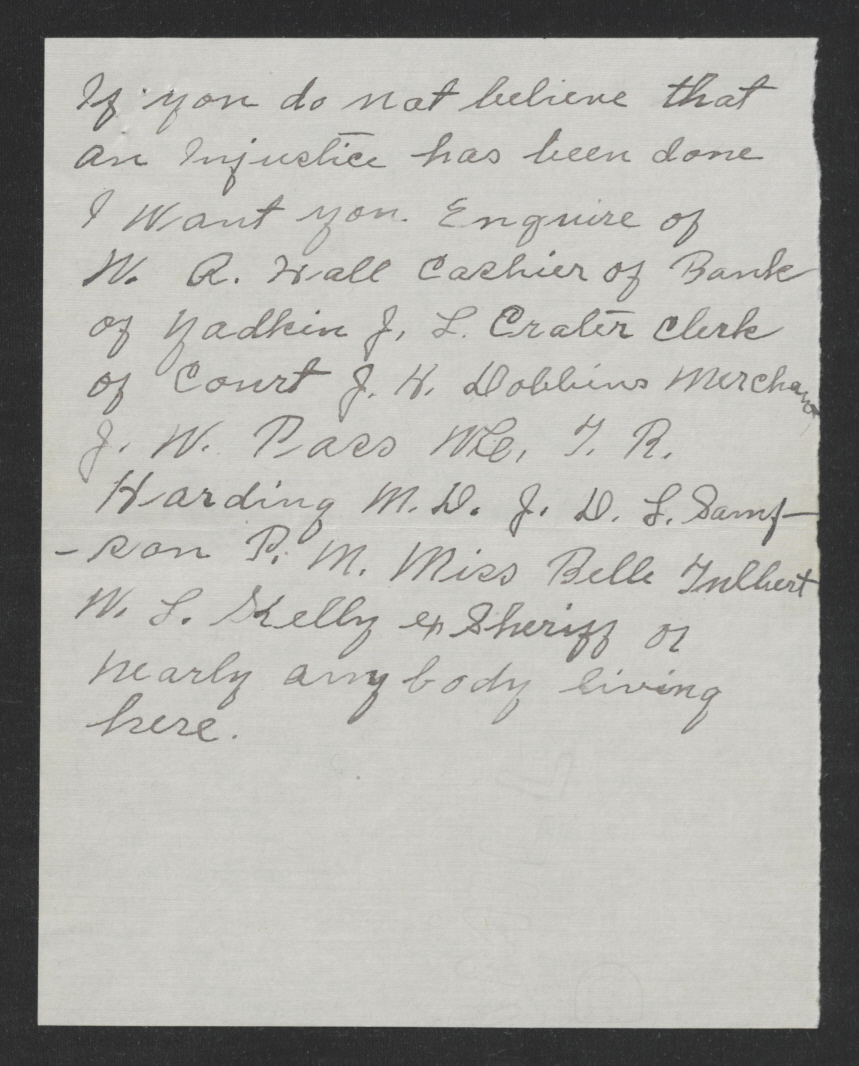 If you do not believe that
an Injustice has been done
I Want you. Enquire of
W. A. Hall Cashier of Bank
of Yadkin J. L. Crater clerk
of Court J. H. Dobbins Merchant
J. W. Pass T. R.
Harding M. D. J. D. L. Samp-
-son P. M. Miss Belle Tulbert
W. L. Kelly ex Sheriff or
nearly any body living
here.